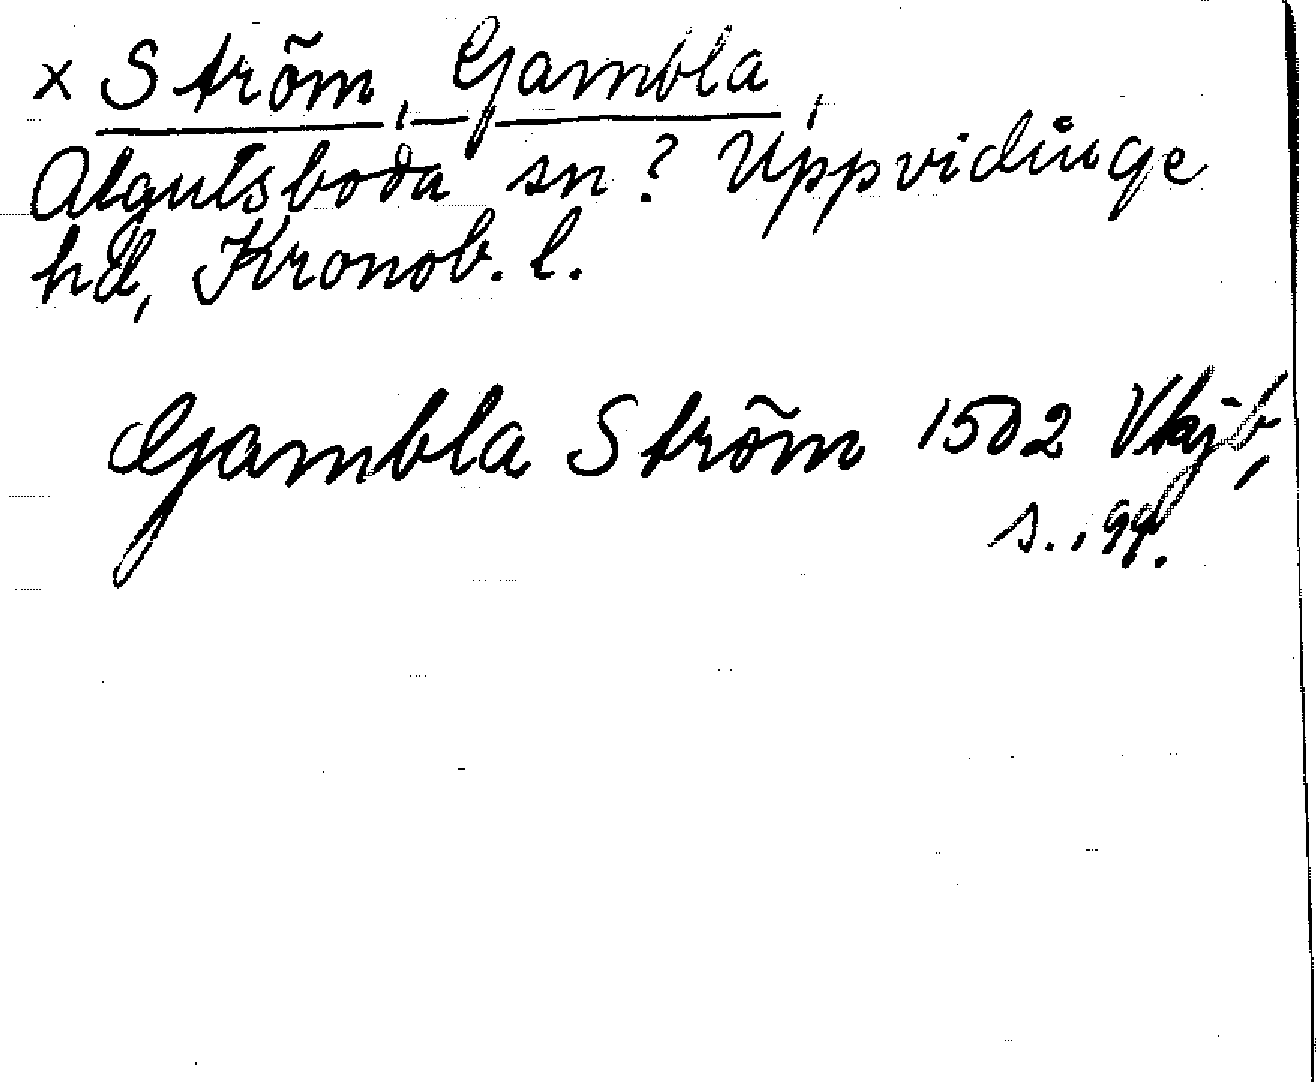 x Ström, Gambla,
Algutsboda sn? Uppvidinge
hd, Kronob. l.
Gambla Ström 1502 Vkjb,
s. 99.